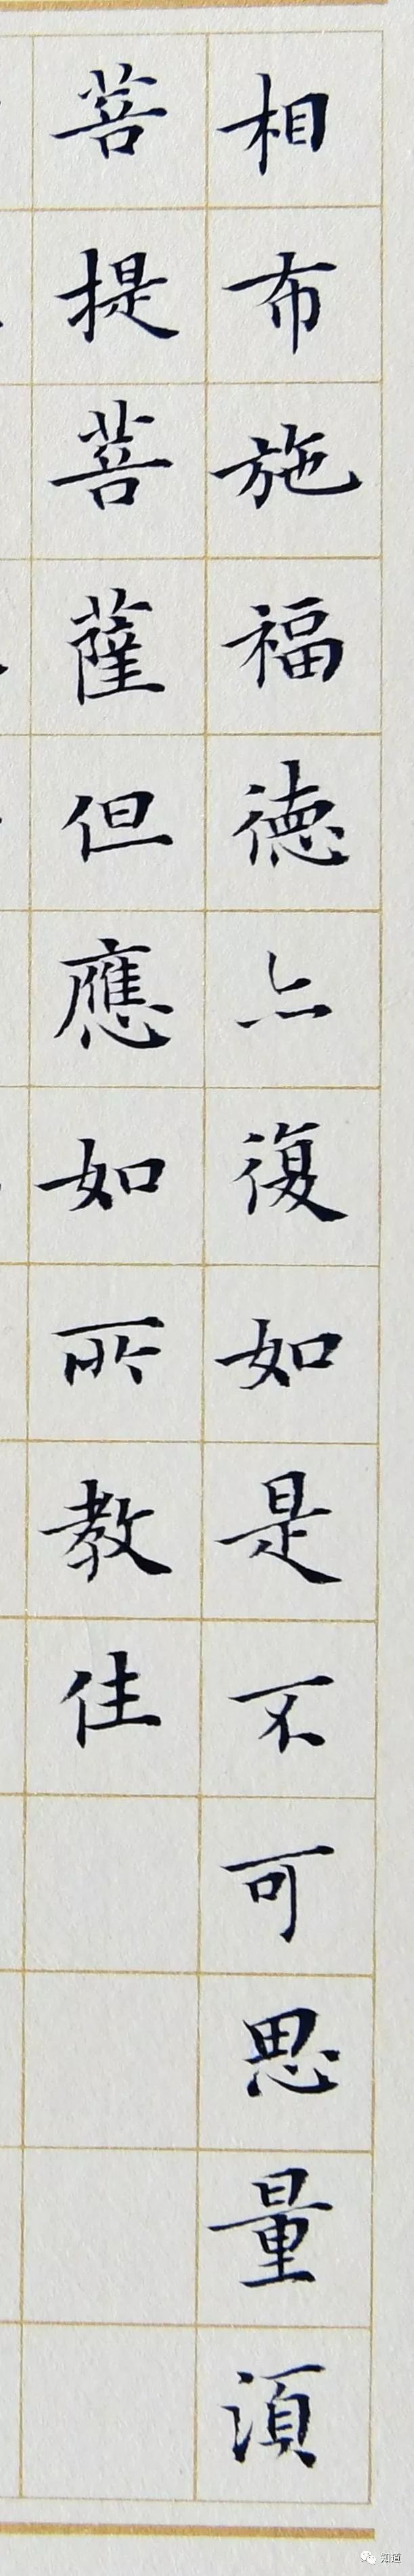 相布施福德亦復如是不可思量須
菩提菩薩但應如所教住
知道